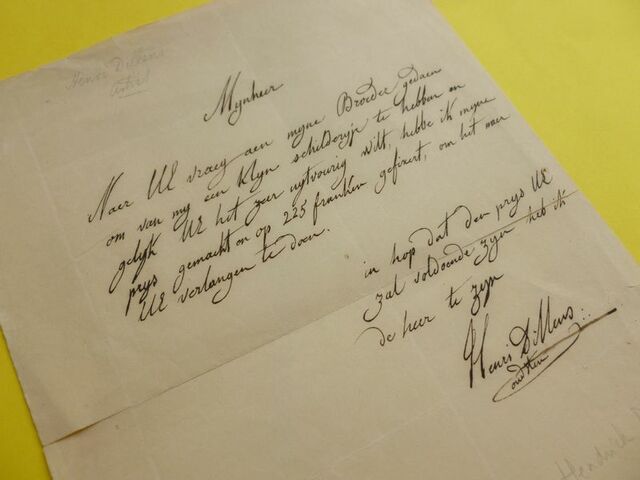 Henri Dillens
Artist
Mynheer
Naer UE vraeg aen myne Broeder gedaen
om van my een klyn schilderyje te hebben en
gelyk UE het zeer uytvourig wilt, hebbe ik myne
prys gemackt on op 225 franken gefixert, om het naer
UE verlangen te doen.
in hop dat den prys UE
zal voldoende zyn heb ik
de heer te zyn
Henri Dillens
Hendrick